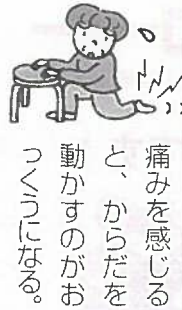 痛みを感じる
と、からだを
動かすのがお
っくうになる。